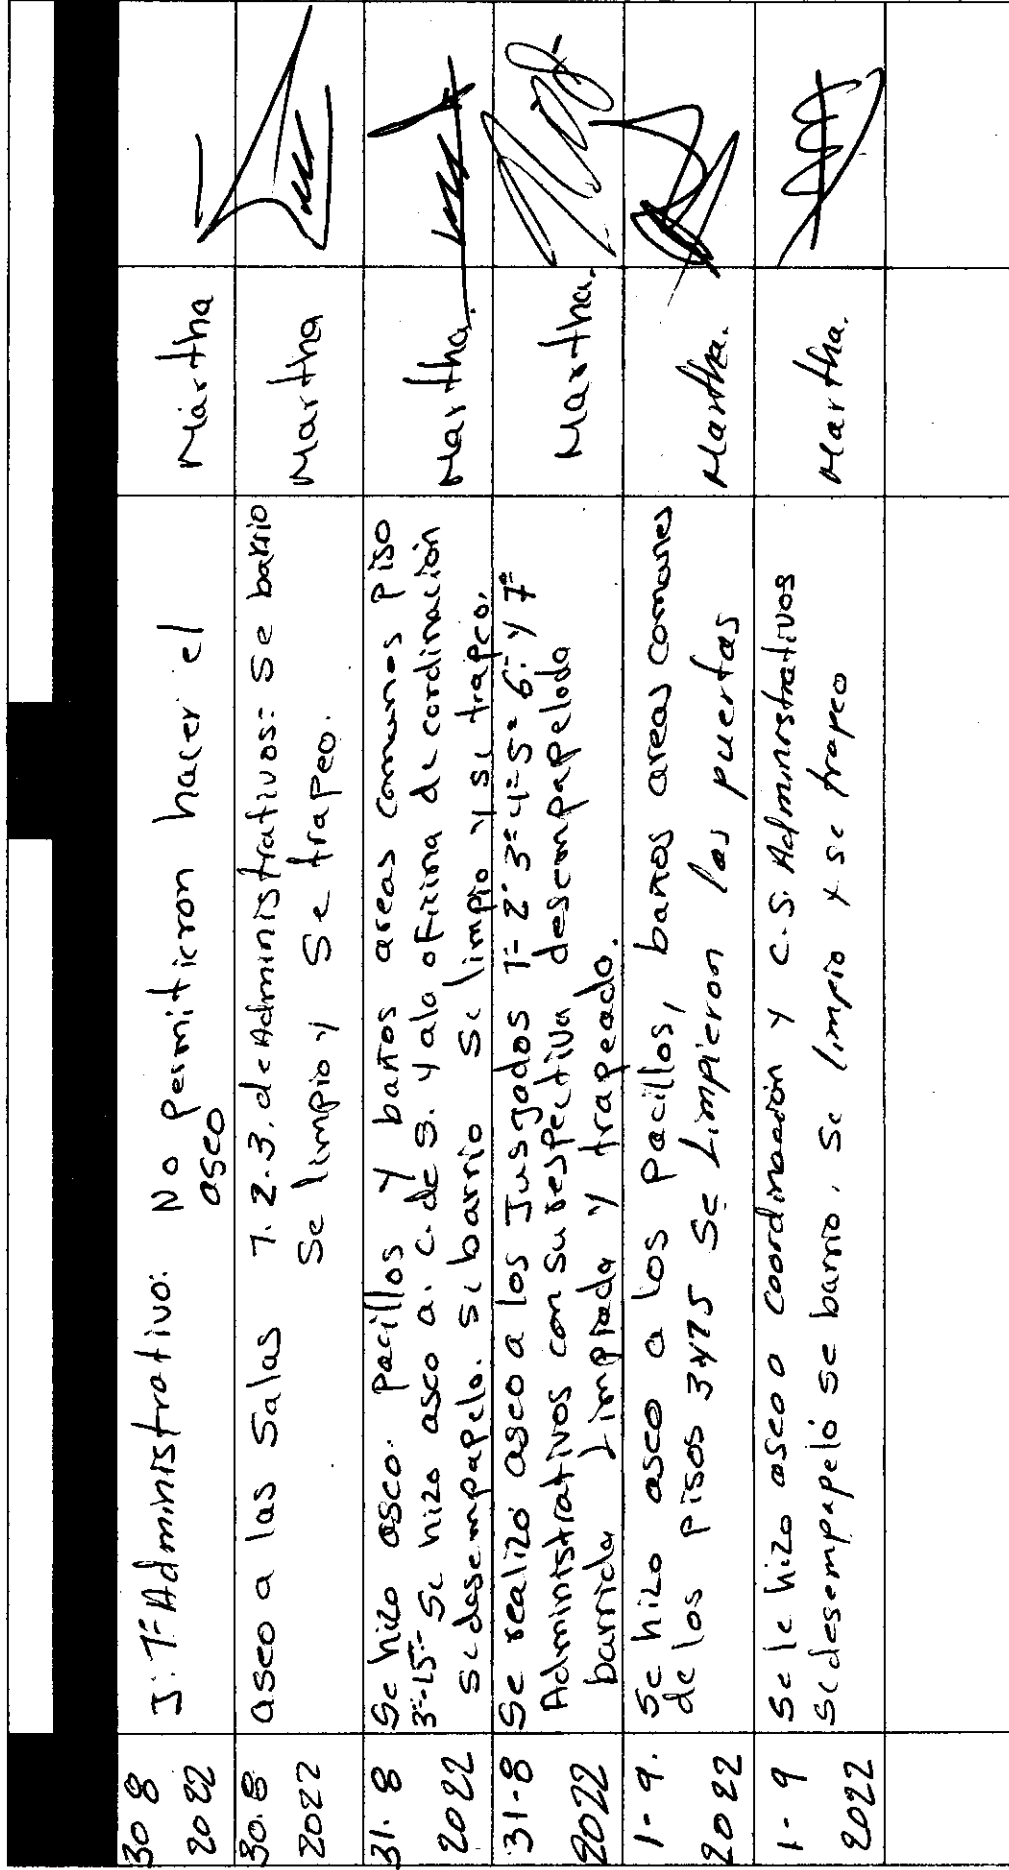 30 8
2022
J: 1º Administrativo: No permitieron hacer el
aseo
Martha
30.8
2022
aseo a las Salas 1.2.3. de Administrativos= Se barrio
Se limpio y Se trapeo.
Martha
31.8
2022
Se hizo aseo. pacillos y baños areas comunes piso
3º-15º- Se hizo aseo a. c. de S. y ala oficina de cordinación
se desempapelo. se barrio se limpio y se trapeo.
Martha.
31-8
2022
Se realizó aseo a los Jusgados 1º 2º 3º 4º 5º 6º y 7º
Administrativos con su respectiva desempapelada
barrida Limpiada y trapeado.
Martha.
1-9.
2022
Se hizo aseo a los Pacillos, baños areas comunes
de los pisos 3 y 15 Se Limpieron las puertas
Martha.
1-9
2022
Se le hizo aseo a coordinación y C.S. Administrativos
se desempapeló se barrio. se limpio y se trapeo
Martha.